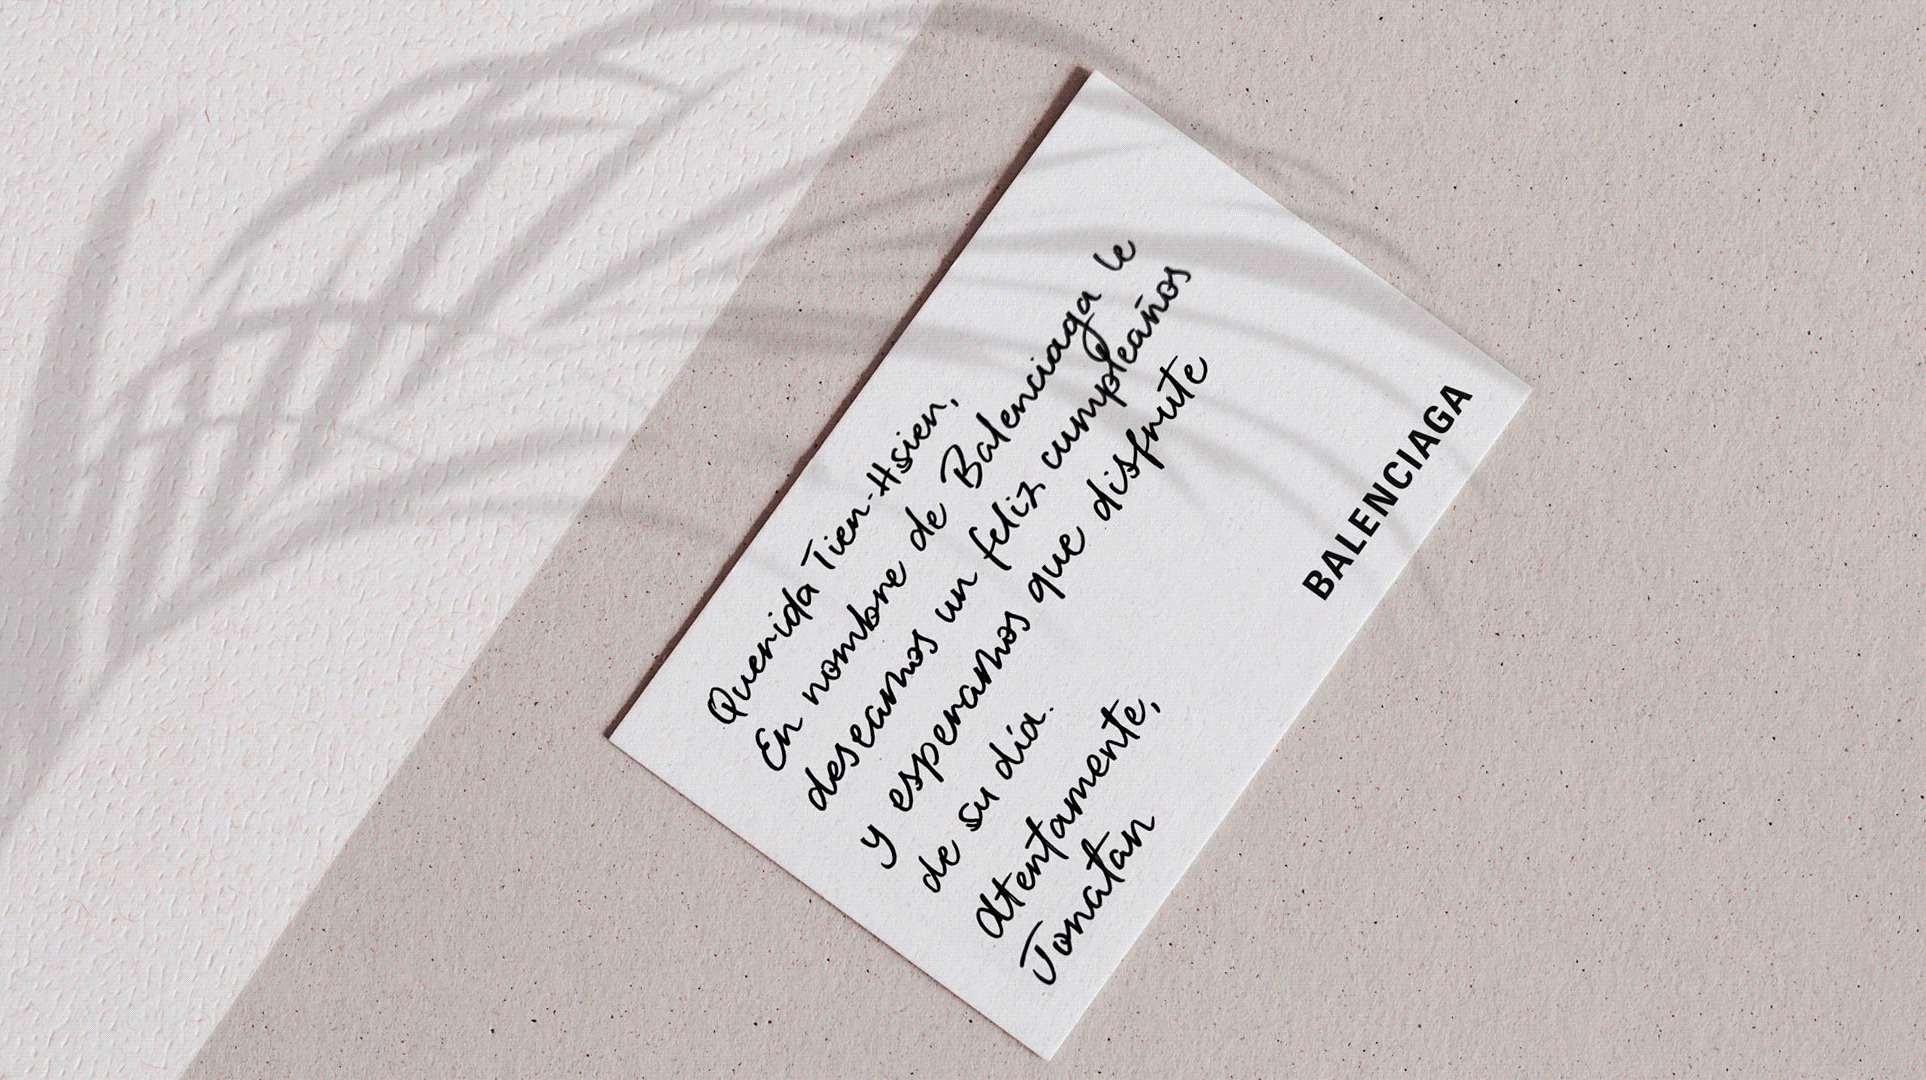 Querida Tien-Hsien,
En nombre de Balenciaga le
deseamos un feliz cumpleaños
y esperamos que disfrute
de su día.
Atentamente,
Jonatan
BALENCIAGA